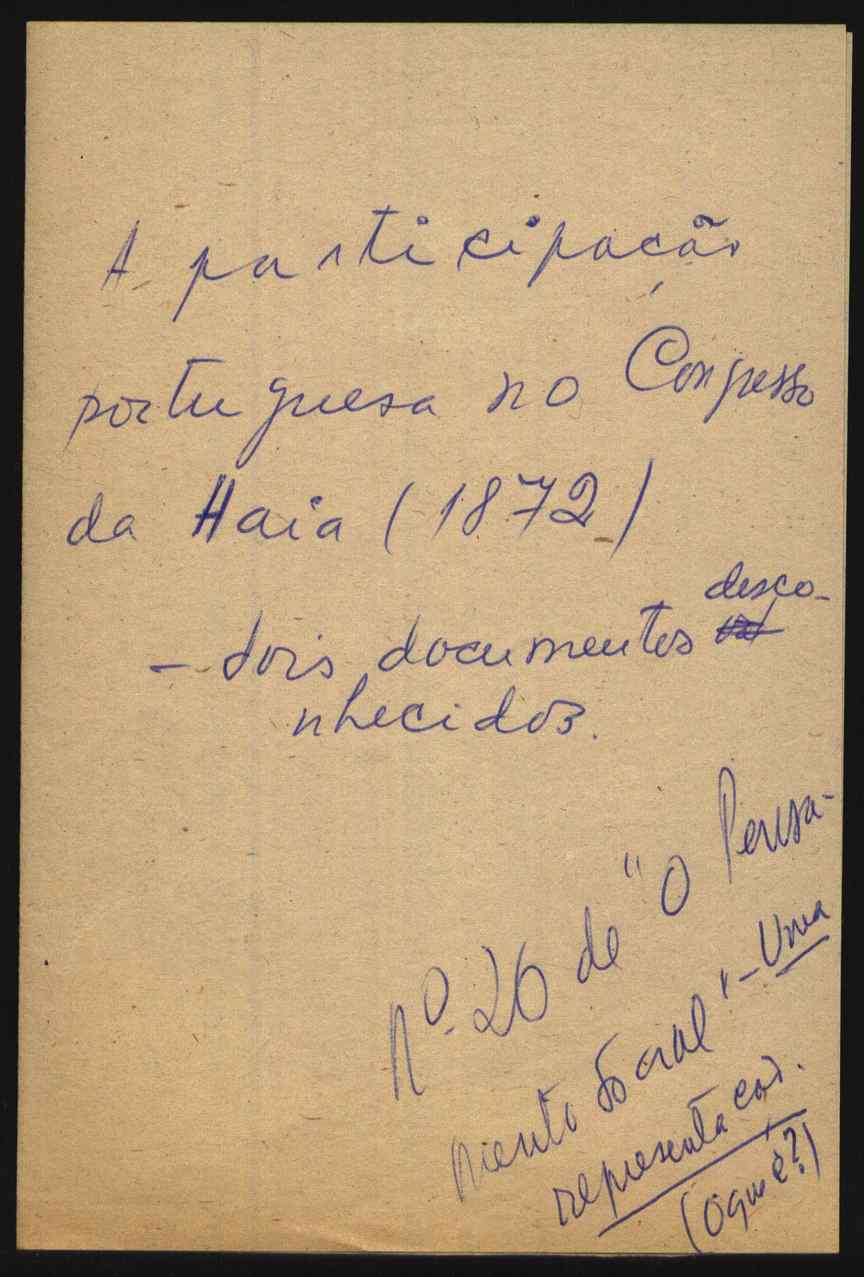 A participação
portuguesa no Congresso
da Haia (1872)
- dois documentos desco-
nhecidos.
Nº 26 de "O Pensa-
mento Social" - Uma
representação.
(o que é?)